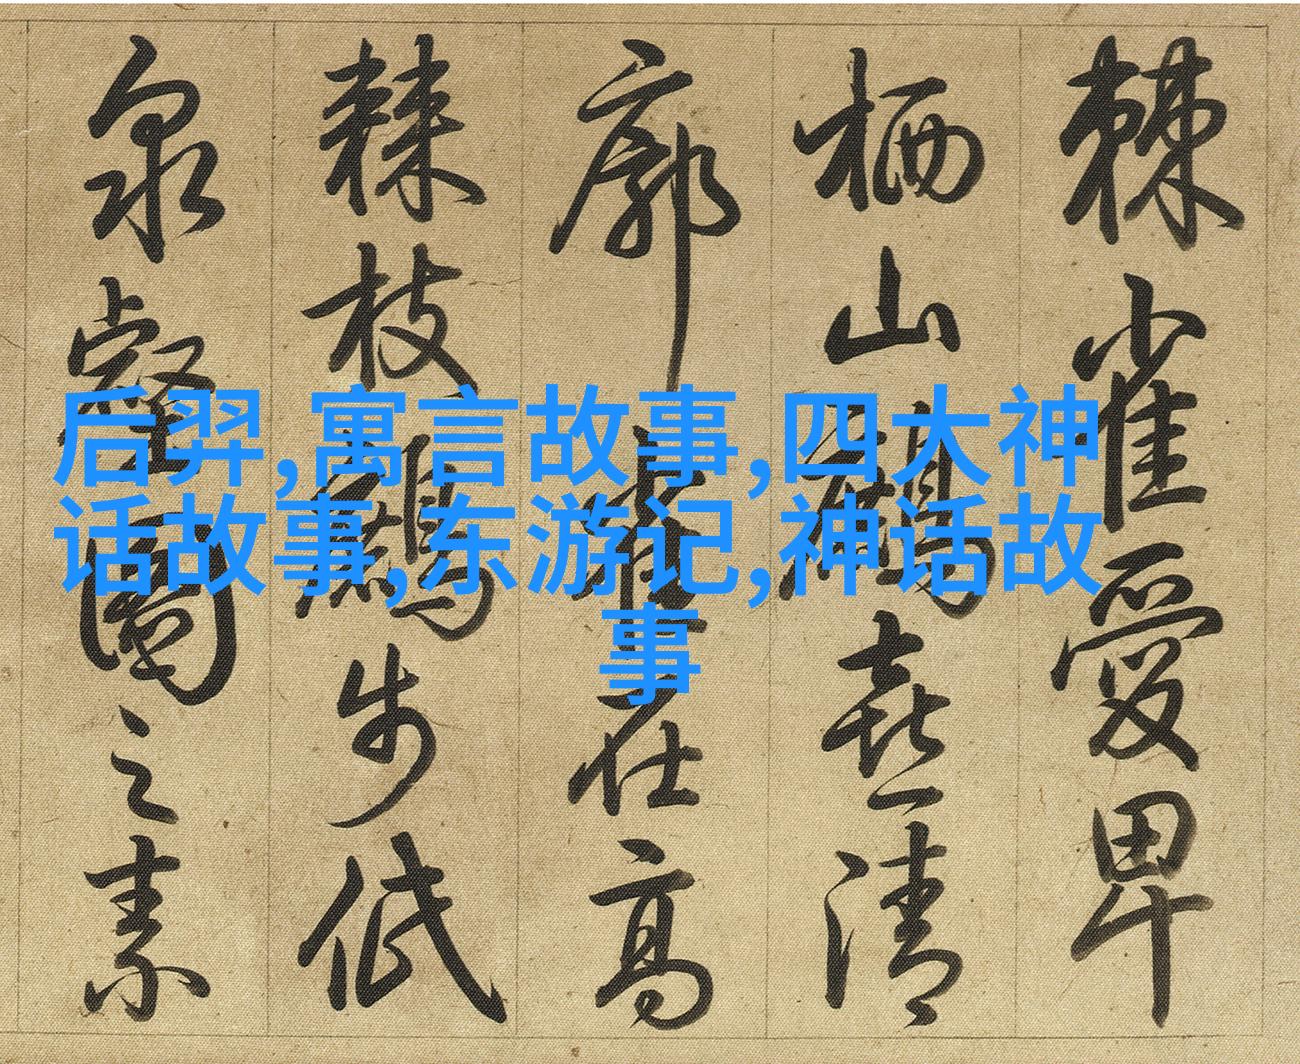 棘雀愛卑
栖山喜清
廓高
棘枝步低
泉壑圖之素
后羿,寓言故事,四大神
话故事,东游记,神话故
事